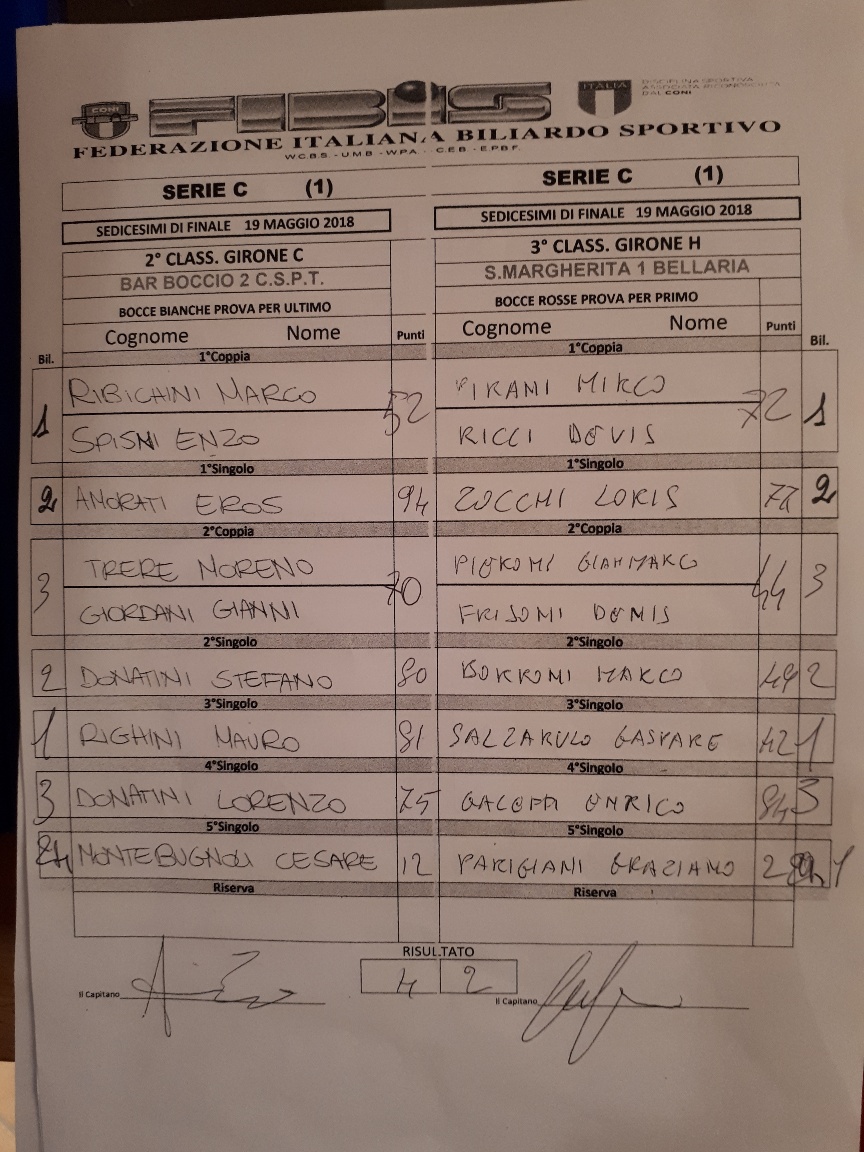 CONI FIBiS ITALIA DISCIPLINA SPORTIVA
ASSOCIATA RICONOSCIUTA
DAL CONI
FEDERAZIONE ITALIANA BILIARDO SPORTIVO
W.C.B.S - UMB - WPA - CEB - EPBF.
SERIE C (1) SERIE C (1)
SEDICESIMI DI FINALE 19 MAGGIO 2018 SEDICESIMI DI FINALE 19 MAGGIO 2018
2° CLASS. GIRONE C 3° CLASS. GIRONE H
BAR BOCCIO 2 C.S.P.T. S.MARGHERITA 1 BELLARIA
BOCCE BIANCHE PROVA PER ULTIMO BOCCE ROSSE PROVA PER PRIMO
Bil. Cognome Nome Punti Cognome Nome Punti Bil.
1°Coppia 1°Coppia
RIBICHINI MARCO PIRANI MIRCO
1 52 72 1
SPISNI ENZO RICCI DEVIS
1°Singolo 1°Singolo
2 AMORATI EROS 94 ZOCCHI LORIS 2
2°Coppia 2°Coppia
TRERE MORENO GIANMARCO
3 70 44 3
GIORDANI GIANNI FRISONI DENIS
2°Singolo 2°Singolo
2 DONATINI STEFANO 80 BORRONI MARCO 49 2
3°Singolo 3°Singolo
1 RIGHINI MAURO 81 SALZARULO GASPARE 42 1
4°Singolo 4°Singolo
3 DONATINI LORENZO 75 ENRICO 84 3
5°Singolo 5°Singolo
MONTEBUGNOLI CESARE 12 PARIGIANI GRAZIANO
Riserva Riserva
RISULTATO
Il Capitano 4 2 Il Capitano